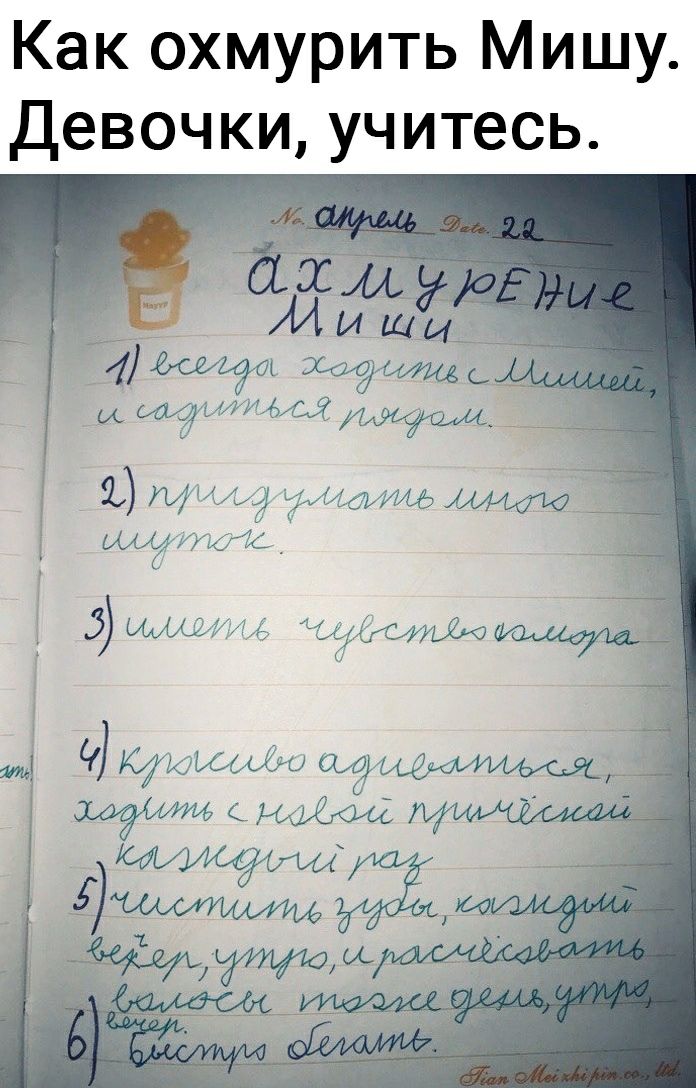 Как охмурить Мишу.
Девочки, учитесь.
No. апрель Date. 22
ахмурЕНие
Миши
1) всегда ходить с Мишей,
и садиться рядом.
2) придумать много
шуток.
3) иметь чувство юмора
4) красиво адиваться,
ходить с новой причёской
каждый раз
5) чистить зубы, каждый
вечер, утро, и расчёсовать
волосы тоже день, утро,
вечер.
6) быстро бегать.
Tian Meizhipin.co., Ltd.